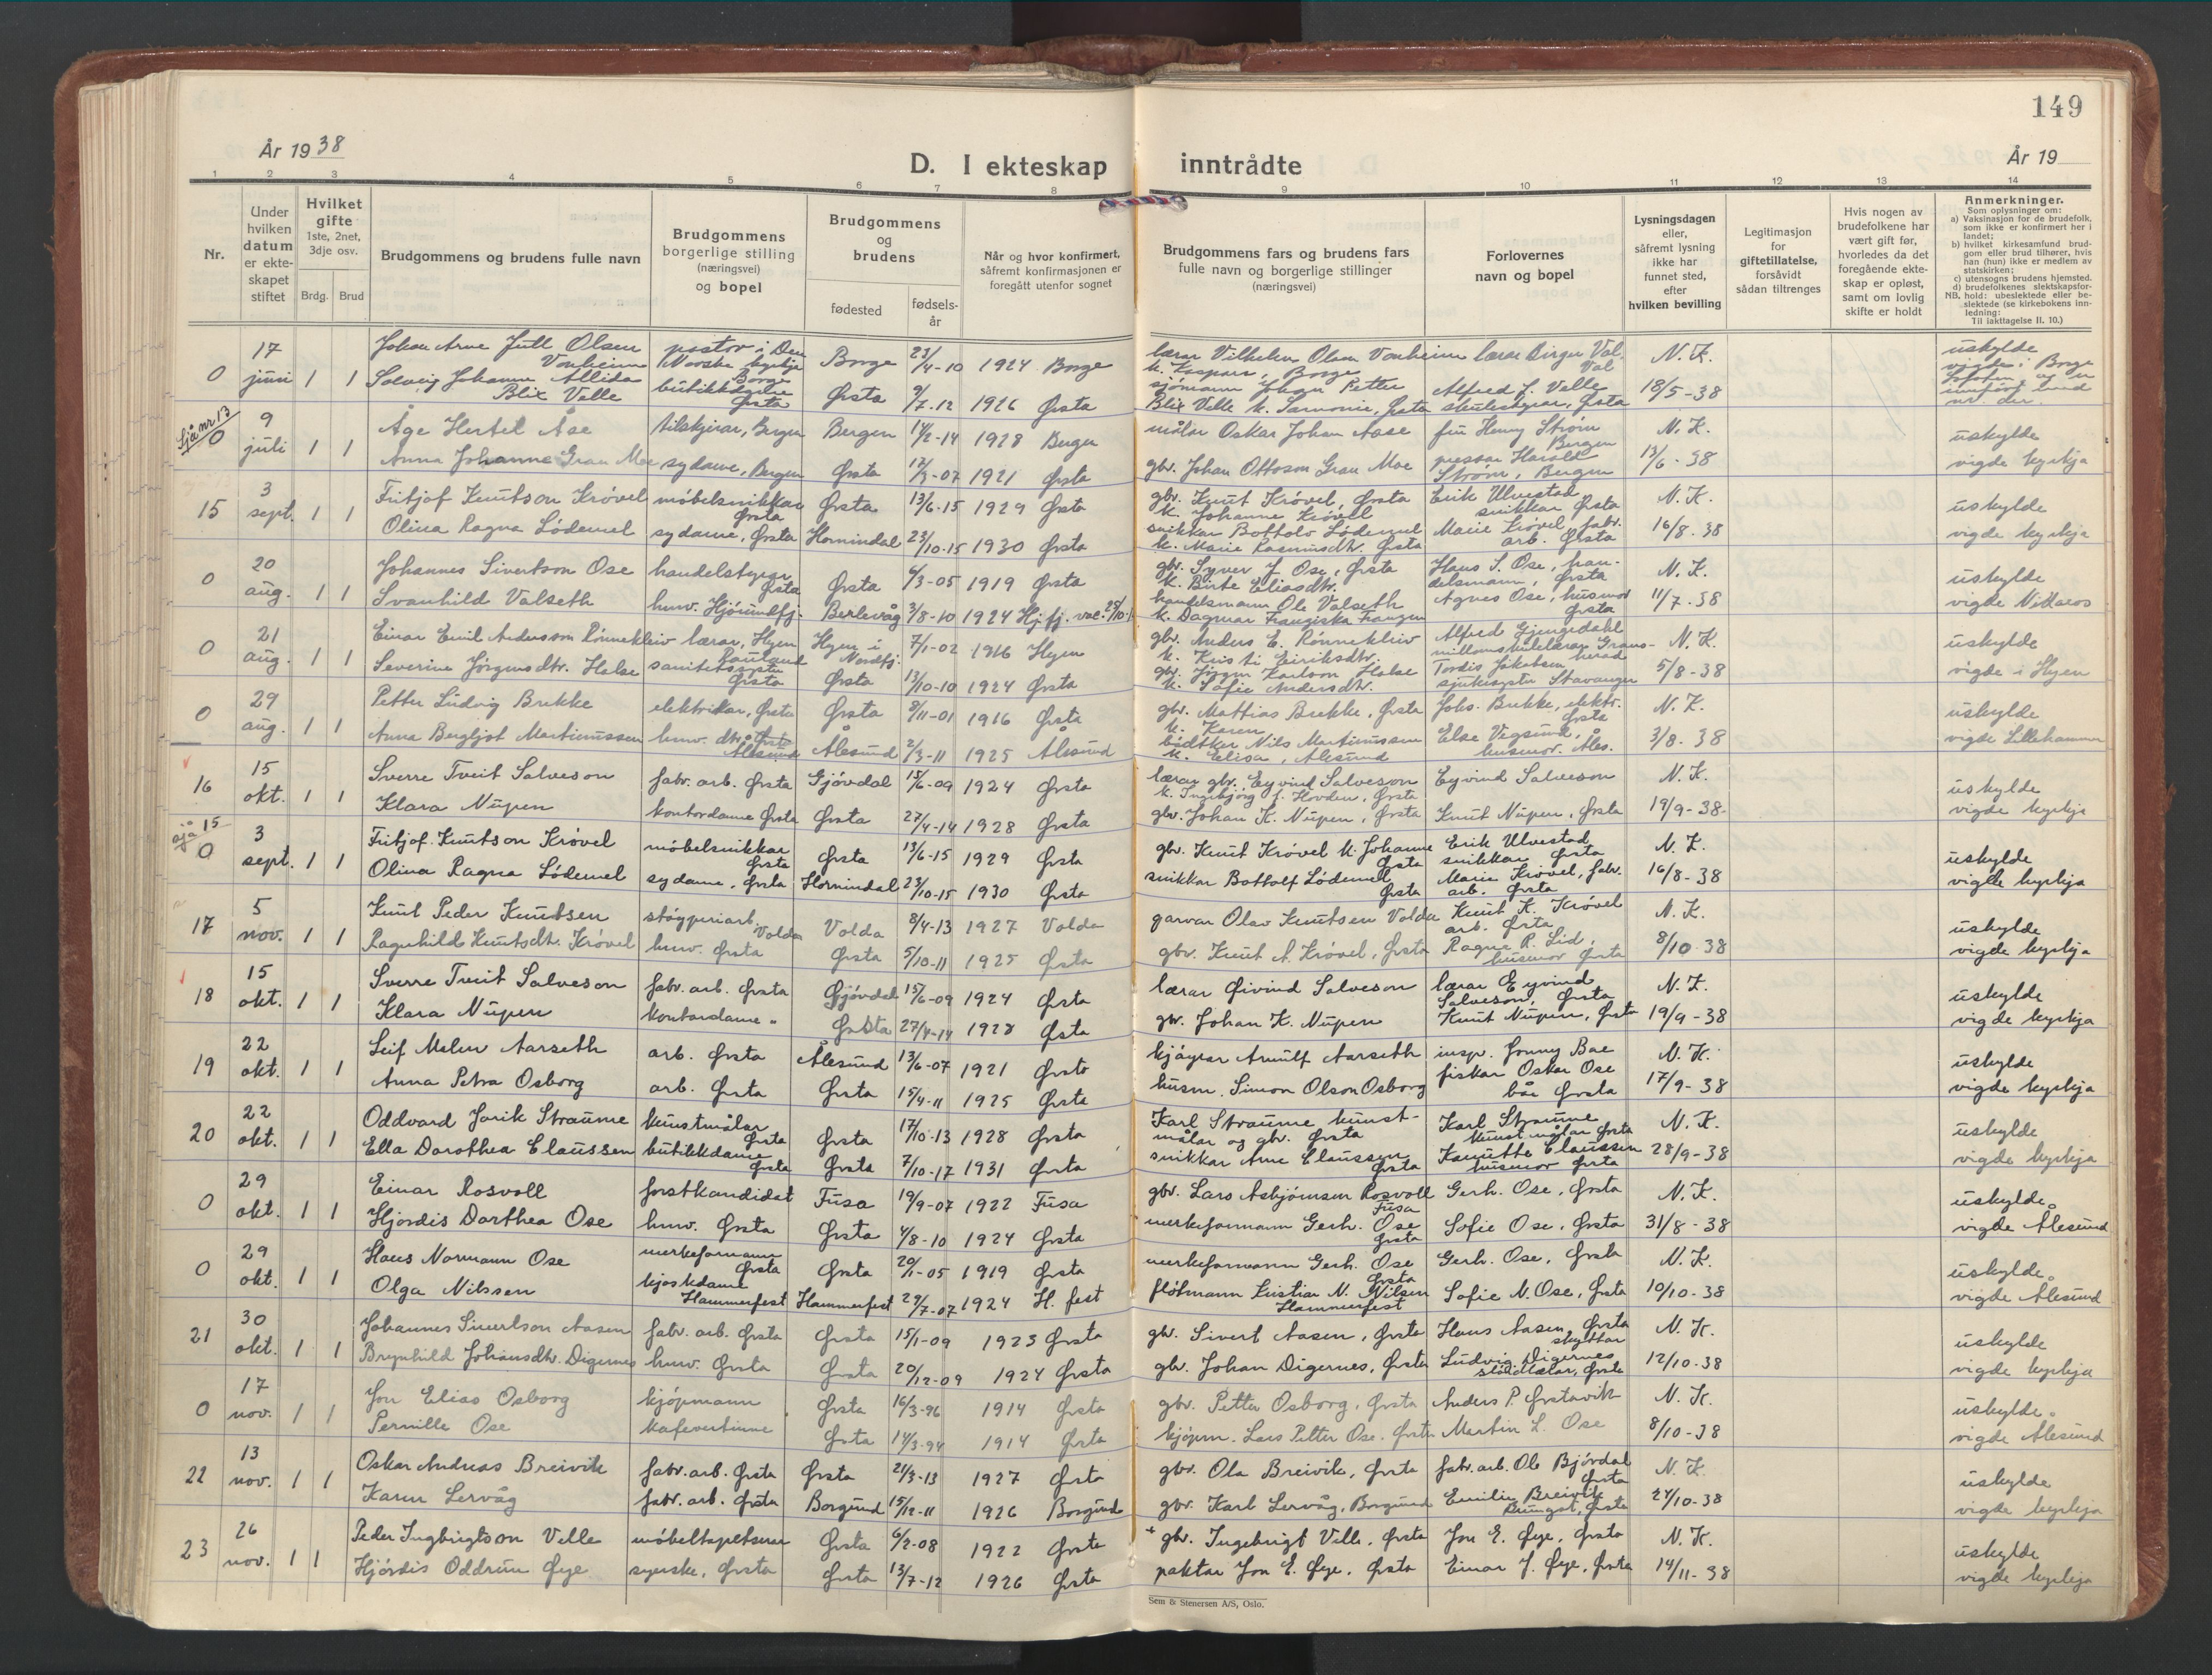 149
År 1938
D. I ekteskap inntrådte
År 19
1 2 3 4 5 6 7 8 9 10 11 12 13 14
Nr.
Under hvilken datum er ekteskapet stiftet
Hvilket gifte 1ste, 2net, 3dje osv.
Brdg. Brud
Brudgommens og brudens fulle navn
Brudgommens borgerlige stilling (næringsvei) og bopel
Brudgommens og brudens
fødested
fødselsår
Når og hvor konfirmert, såfremt konfirmasjonen er foregått utenfor sognet
Brudgommens fars og brudens fars fulle navn og borgerlige stillinger (næringsvei)
Forlovernes navn og bopel
Lysningsdagen eller, såfremt lysning ikke har funnet sted, efter hvilken bevilling
Legitimasjon for giftetillatelse, forsåvidt sådan tiltrenges
Hvis nogen av brudefolkene har vært gift før, hvorledes da det foregående ekteskap er opløst, samt om lovlig skifte er holdt
Anmerkninger.
Som oplysninger om:
a) Vaksinasjon for de brudefolk, som ikke er konfirmert her i landet;
b) hvilket kirkesamfund brudgom eller brud tilhører, hvis han (hun) ikke er medlem av statskirken;
c) utensogns brudens hjemsted.
d) brudefolkenes slektskapsforhold: ubeslektede eller beslektede (se kirkebokens innledning:
NB. Til iakttagelse II. 10.)
0 17 juni 1 1 Johan Arne Jull Olsen Vonheim pastor i Den Norske kyrkje Borge Borge 23/4-10 1924 Borge lærar Vilhelm Olsen Vonheim k. Kaspara, Borge lærar Birger Val Val N.K. uskylde
Solveig Johanne Allida Blix Velle butikkdame Ørsta Ørsta 9/7-12 1926 Ørsta sjømann Johan Petter Blix Velle k. Ørsta Alfred J. Velle skulestyrar, Ørsta 18/5-38 vigde i Borge
Sjå nr 13
0 9 juli 1 1 Åge Hertel Åse Bergen Bergen 14/2-14 1928 Bergen målar Oskar Johan Aase fru Henny Strøm Bergen N.K. uskylde
Anna Johanne Grau Moe sydame, Bergen Ørsta 12/3-07 1921 Ørsta gbr. Johan Ottoson Grau Moe Harald Strøm, Bergen 13/6-38 vigde kyrkja
15 3 sept. 1 1 Fritjof Knutson Krøvel møbelsnikkar Ørsta Ørsta 13/6-15 1929 Ørsta gbr. Knut Krøvel, Ørsta k. Johanne Krøvel Erik Ulvestad snikkar Ørsta N.K. uskylde
Olina Ragna Lødemel sydame, Ørsta Hornindal 23/10-15 1930 Ørsta snikkar Bottolv Lødemel k. Marie Rasmusdtr. Ørsta Marie Krøvel, fabr. arb. Ørsta 16/8.38 vigde kyrkja
0 20 aug. 1 1 Johannes Sivertson Ose handelsstyrar Ørsta Ørsta 6/3-05 1919 Ørsta gbr. Syver J. Ose, Ørsta k. Birte Eliasdtr. Hans S. Ose, handelsmann, Ørsta N.K. uskylde
Svanhild Valseth husv. Hjørundfj. Berlevåg 3/8-10 1924 Hj.fj. vac. handelsmann Ole Valseth k. Dagmar Franziska Agnes Ose, husmor Ørsta 11/7.38 vigde Nidaros
0 21 aug. 1 1 Einar Emil Andersson Rønnekleiv lærar, Hyen Hyen i Nordfj. 7/1-02 1916 Hyen gbr. Anders E. Rønnekleiv k. Kristi Eiriksdtr. Alfred Gjengedahl N.K. uskylde
Severine Jørgensdtr. Halse sanitetssyster Ørsta Ørsta 13/10-10 1924 Ørsta gbr. Jørgen Karlson Halse k. Sofie Andersdtr. Tordis Jakobsen, sjukesyster Stavanger 5/8-38 vigde i Hyen
0 29 aug. 1 1 Petter Ludvig Brekke elektrikar, Ørsta Ørsta 8/11-01 1916 Ørsta gbr. Mattias Brekke, Ørsta k. Karen Johs. Brekke, elektr. Ørsta N.K. uskylde
Anna Bergljot Martinussen husv. Ålesund Ålesund 2/3-11 1925 Ålesund bødtker Nils Martinussen k. Elisa, Ålesund Else Vigsund, husmor. Åles. 3/8.38 vigde Lillehammer
16 15 okt. 1 1 Sverre Tveit Salveson fabr. arb. Ørsta Gjøvdal 15/6-09 1924 Ørsta lærar gbr. Eyvind Salveson k. Ingebjørg f. Hovden, Ørsta Eyvind Salveson N.K. uskylde
Klara Nupen kontordame Ørsta Ørsta 27/4-14 1928 Ørsta gbr. Johan K. Nupen, Ørsta Knut Nupen, Ørsta 19/9-38- vigde kyrkja
sjå 15
0 3 sept. 1 1 Fritjof Knutson Krøvel møbelsnikkar Ørsta Ørsta 13/6-15 1929 Ørsta gbr. Knut Krøvel k. Johanne Ørsta Erik Ulvestad snikkar Ørsta N.K. uskylde
Olina Ragna Lødemel sydame, Ørsta Hornindal 23/10-15 1930 Ørsta snikkar Bottolf Lødemel Ørsta Marie Krøvel, fabr. arb. Ørsta 16/8-38 vigde kyrkja
17 5 nov. 1 1 Knut Peder Knutsen støyperiarb. Volda Volda 8/4-13 1927 Volda garvar Olav Knutsen Volda Knut K. Krøvel arb. Ørsta N.K. uskylde
Ragnhild Knutsdtr. Krøvel husv. Ørsta Ørsta 5/10-11 1925 Ørsta gbr. Knut A. Krøvel, Ørsta Ragna R. Lid, husmor Ørsta 8/10.38 vigde kyrkja
18 15 okt. 1 1 Sverre Tveit Salveson fabr. arb. Ørsta Gjøvdal 15/6-09 1924 Ørsta lærar Øivind Salveson lærar Eyvind Salveson, Ørsta N.K. uskylde
Klara Nupen kontordame " Ørsta 27/4-14 1928 Ørsta gbr. Johan K. Nupen Knut Nupen, Ørsta 19/9-38 vigde kyrkja
19 22 okt. 1 1 Leif Melen Aarseth arb. Ørsta Ålesund 13/6-07 1921 Ørsta kjøyrar Arnulf Aarseth insp. Jonny Boe N.K. uskylde
Anna Petra Osborg arb. Ørsta Ørsta 15/4-11 1925 Ørsta husm. Simon Olson Osborg fiskar Oskar Ose båe Ørsta 17/9-38 vigde kyrkja
20 22 okt. 1 1 Oddvard Jarik Straume kunstmålar Ørsta Ørsta 17/10-13 1928 Ørsta Karl Straume kunstmålar og gbr. Ørsta Karl Straume kunstmålar Ørsta N.K. uskylde
Ella Dorothea Claussen butikkdame Ørsta Ørsta 7/10-17 1931 Ørsta snikkar Arne Claussen Ørsta Knutte Claussen husmor Ørsta 28/9-38 vigde kyrkja
0 29 okt. 1 1 Einar Rosvoll forstkandidat Fusa 19/9-07 1922 Fusa gbr. Lars Asbjørnsen Rosvoll Fusa Gerh. Ose, Ørsta N.K. uskylde
Hjørdis Dorthea Ose husv. Ørsta Ørsta 4/8-10 1924 Ørsta merkeformann Gerh. Ose Ørsta Sofie Ose, Ørsta 31/8-38 vigde Ålesund
0 29 okt. 1 1 Hans Normann Ose merkeformann Ørsta Ørsta 20/1-05 1919 Ørsta merkeformann Gerh. Ose Ørsta Gerh. Ose, Ørsta N.K. uskylde
Olga Nilssen kjoskdame Hammerfest Hammerfest 29/7-07 1924 H.fest fløtmann Kristian N. Nilsen Hammerfest Sofie N. Ose, Ørsta 10/10-38 vigde Ålesund
21 30 okt. 1 1 Johannes Sivertson Aasen fabr. arb. Ørsta Ørsta 15/1-09 1923 Ørsta gbr. Sivert Aasen, Ørsta Hans Aasen, Ørsta N.K. uskylde
Brynhild Johansdtr. Digernes husv. Ørsta Ørsta 20/12-09 1924 Ørsta gbr. Johan Digernes, Ørsta Ludvig Digernes Ørsta 12/10.38 vigde kyrkja
0 17 nov. 1 1 Jon Elias Osborg kjøpmann Ørsta 16/3-96 1914 Ørsta gbr. Petter Osborg, Ørsta Anders P. Ørstavik N.K. uskylde
Pernille Ose kafevertinne Ørsta 14/3-94 1914 Ørsta kjøpm. Lars Petter Ose. Ørsta Martin L. Ose 8/10-38 vigde Ålesund
22 13 nov. 1 1 Oskar Andreas Breivik fabr. arb. Ørsta Ørsta 21/3-13 1927 Ørsta gbr. Ola Breivik, Ørsta fabr. arb. Ole Bjørdal Ørsta N.K. uskylde
Karen Lervåg fabr. arb. Ørsta Borgund 15/12-11 1926 Borgund gbr. Karl Lervåg, Borgund Emilie Breivik Ørsta 24/10-38 vigde kyrkja
23 26 nov. 1 1 Peder Ingbrigtson Velle møbeltapetserar Ørsta 6/2-08 1922 Ørsta + gbr. Ingebrigt Velle, Ørsta Jon E. Øye, Ørsta N.K. uskylde
Hjørdis Oddrun Øye syerske, Ørsta Ørsta 13/7-12 1926 Ørsta paktar Jon E. Øye, Ørsta Einar J. Øye, Ørsta 14/11-38 vigde kyrkja
Sem & Stenersen A/S, Oslo.